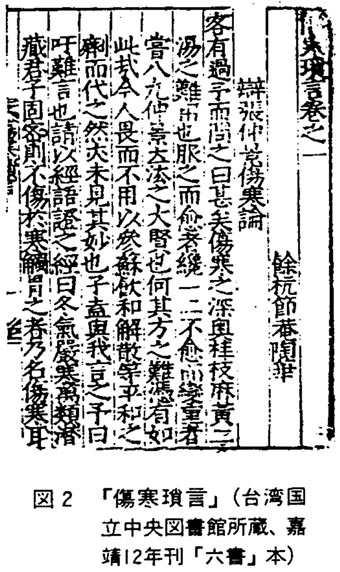 傷寒瑣言卷之一
餘杭節菴陶華
辯張仲景傷寒論
客有過予而問之曰甚矣傷寒之深奧桂枝麻黃二
湯之難用也服之而愈者纔一二不愈而變重者
嘗八九仲景立法之大賢也何其方之難憑有如
此哉今人畏而不用以參蘇飲和解散等平和之
劑而代之然亦未見其妙也子盍與我言之予曰
吁難言也請以經語證之經曰冬氣嚴寒萬類潛
藏君子固密則不傷於寒觸冒之者乃名傷寒耳
図2 「傷寒瑣言」(台湾国
立中央図書館所蔵、嘉
靖12年刊「六書」本)